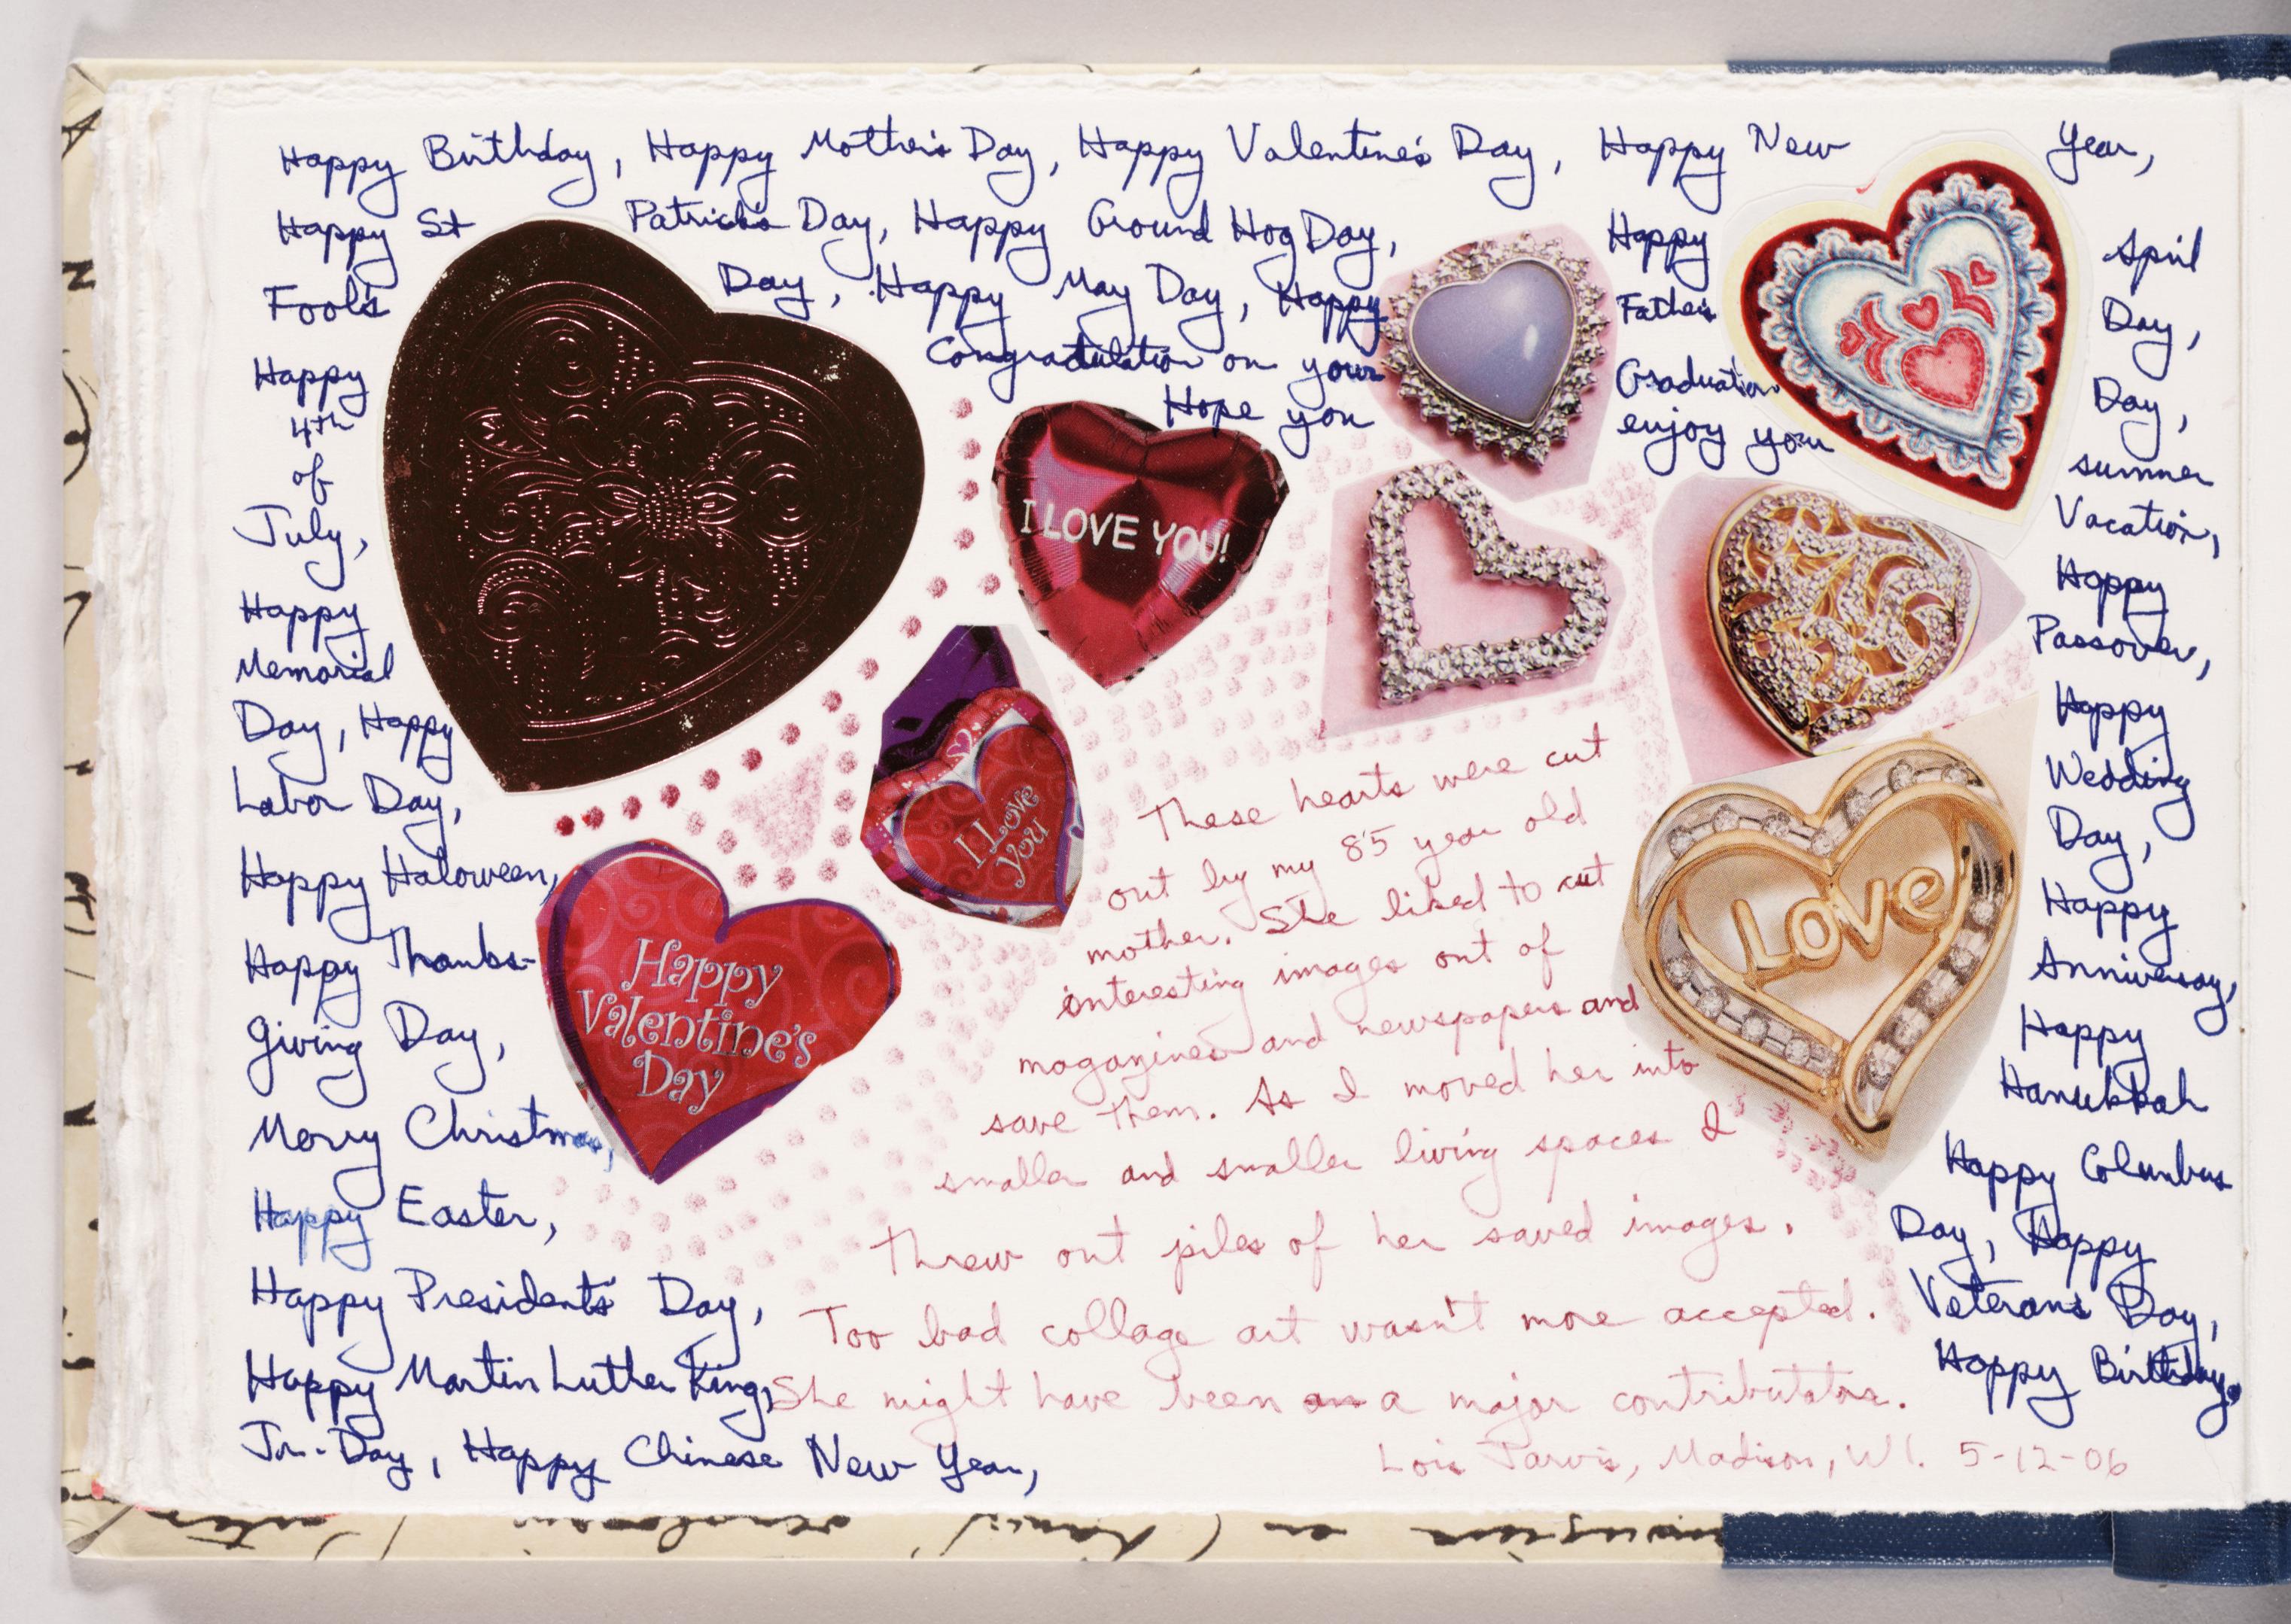 Happy Birthday, Happy Mother's Day, Happy Valentine's Day, Happy New Year,
Happy St Patrick's Day, Happy Ground Hog Day, Happy April
Fool's Day, Happy May Day, Happy Father's Day,
Congratulation on your Graduation Day,
Hope you enjoy your summer
Vacation,
Happy
Passover,
Happy
Wedding
Day,
Happy
Anniversay,
Happy
Hanukkah
Happy Columbus
Day, Happy
Veteran's Day,
Happy Birthday,
Happy
4th
of
July,
Happy
Memorial
Day, Happy
Labor Day,
Happy Haloween,
Happy Thanks-
giving Day,
Merry Christmas,
Happy Easter,
Happy Presidents' Day,
Happy Martin Luther King,
Jr. Day, Happy Chinese New Year,
I LOVE YOU!
I Love
You
Happy
Valentine's
Day
Love
These hearts were cut
out by my 85 year old
mother. She liked to cut
interesting images out of
magazines and newspapers and
save them. As I moved her into
smaller and smaller living spaces I
threw out piles of her saved images.
Too bad collage art wasn't more accepted.
She might have been a major contributator.
Lois Jarvis, Madison, WI. 5-12-06